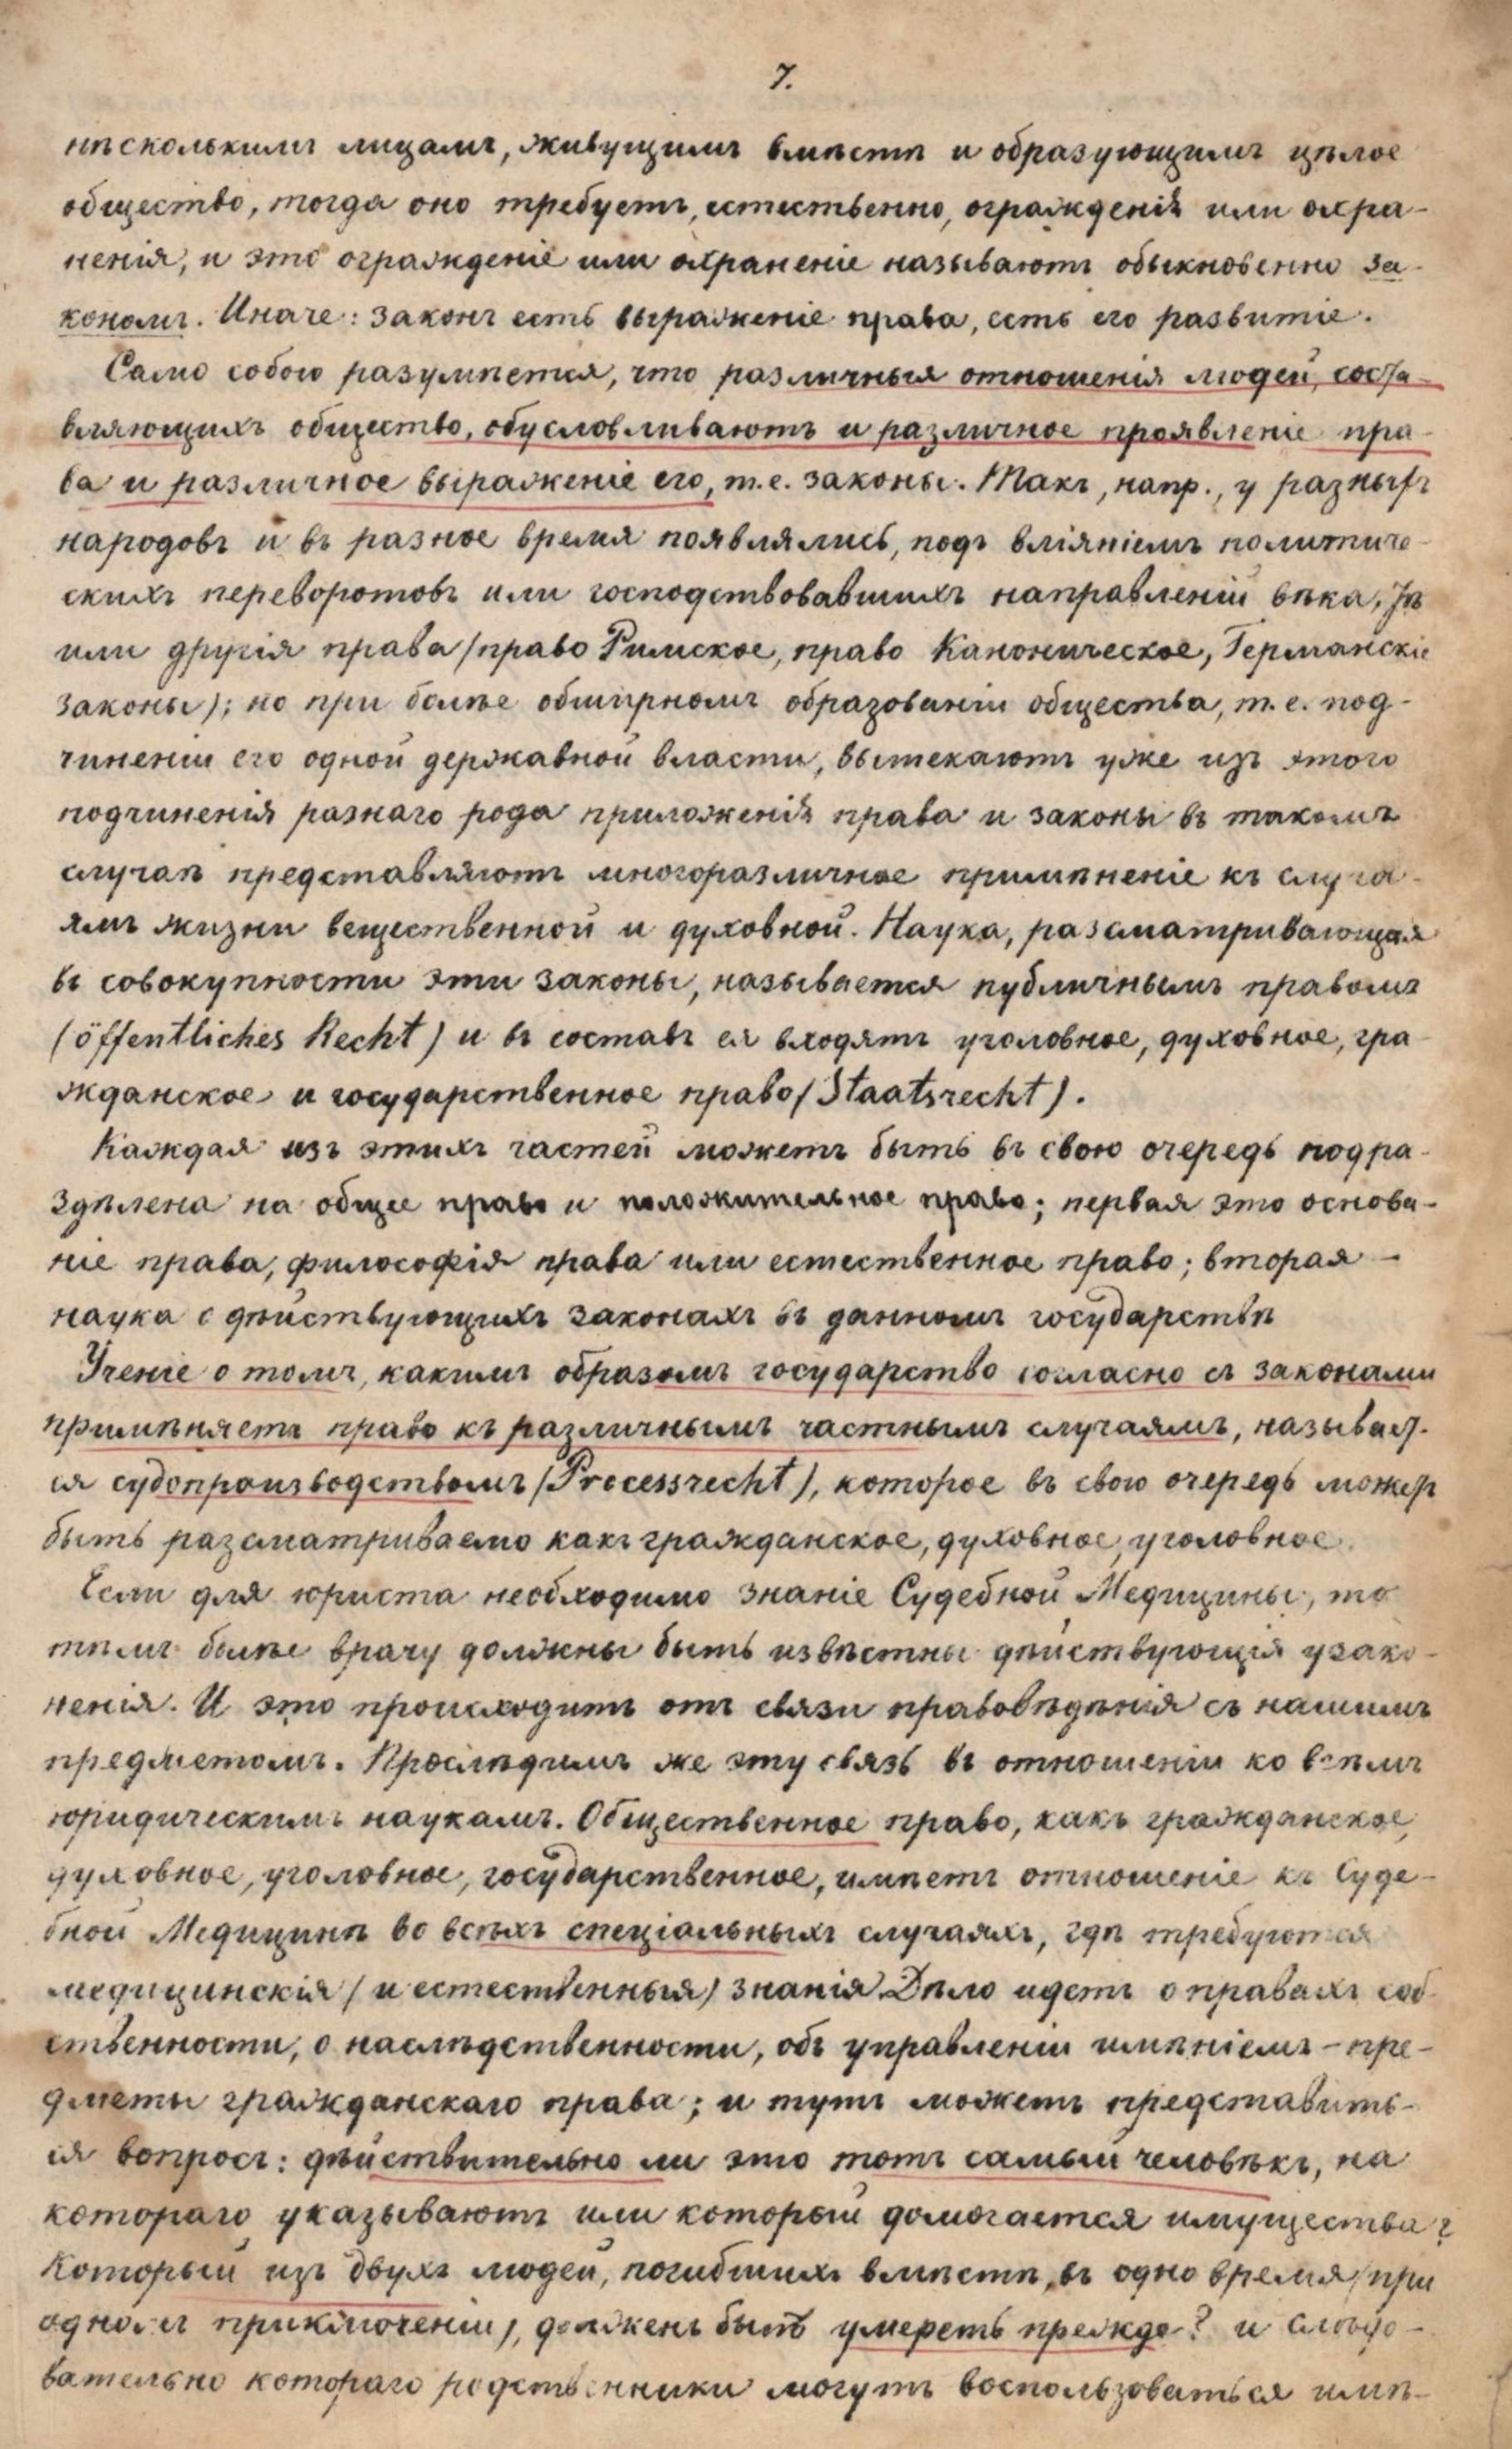 7.
нѣсколькимъ лицамъ, живущимъ вмѣстѣ и образующимъ цѣлое
общество, тогда оно требуетъ, естественно, огражденія или охра-
ненія, и это огражденіе или охраненіе называютъ обыкновенно за-
кономъ. Иначе: законъ есть выраженіе права, есть его развитіе.
Само собою разумѣется, что различныя отношенія людей, соста-
вляющихъ общество, обусловливаютъ и различное проявленіе пра-
ва и различное выраженіе его, т.е. законы. Такъ, напр., у разныхъ
народовъ и въ разное время появлялись, подъ вліяніемъ политиче-
скихъ переворотовъ или господствовавшихъ направленій вѣка, тѣ
или другія права (право Римское, право Каноническое, Германскіе
законы); но при болѣе обширномъ образованіи общества, т.е. под-
чиненіи его одной державной власти, вытекаютъ уже изъ этого
подчиненія разнаго рода приложенія права и законы въ такомъ
случаѣ представляютъ многоразличное примѣненіе къ случа-
ямъ жизни вещественной и духовной. Наука, разсматривающая
въ совокупности эти законы, называется публичнымъ правомъ
(öffentliches Recht) и въ составъ ея входятъ уголовное, духовное, гра-
жданское и государственное право (Staatsrecht).
Каждая изъ этихъ частей можетъ быть въ свою очередь подра-
здѣлена на общее право и положительное право; первая это основа-
ніе права, философія права или естественное право; вторая —
наука о дѣйствующихъ законахъ въ данномъ государствѣ
Ученіе о томъ, какимъ образомъ государство согласно съ законами
примѣняетъ право къ различнымъ частнымъ случаямъ, называет-
ся судопроизводствомъ (Processrecht), которое въ свою очередь можетъ
быть разсматриваемо какъ гражданское, духовное, уголовное.
Если для юриста необходимо знаніе Судебной Медицины, то
тѣмъ болѣе врачу должны быть извѣстны дѣйствующія узако-
ненія. И это происходитъ отъ связи правовѣдѣнія съ нашимъ
предметомъ. Прослѣдимъ же эту связь въ отношеніи ко всѣмъ
юридическимъ наукамъ. Общественное право, какъ гражданское,
духовное, уголовное, государственное, имѣетъ отношеніе къ Суде-
бной Медицинѣ во всѣхъ спеціальныхъ случаяхъ, гдѣ требуются
медицинскія (и естественныя) знанія. Дѣло идетъ о правахъ соб-
ственности, о наслѣдственности, объ управленіи имѣніемъ – пре-
дметы гражданскаго права; и тутъ можетъ представить-
ся вопросъ: дѣйствительно ли это тотъ самый человѣкъ, на
котораго указываютъ или который домогается имущества?
Который изъ двухъ людей, погибшихъ вмѣстѣ, въ одно время (при
одномъ приключеніи), долженъ быть умереть прежде? и слѣдо-
вательно котораго родственники могутъ воспользоваться имѣ-